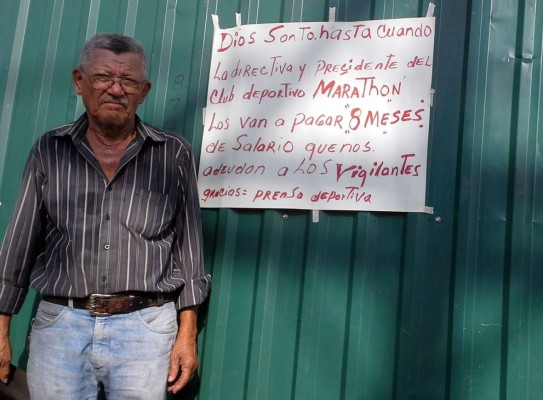 Dios Santo, hasta Cuando
La directiva y Presidente del
Club deportivo MARAthon
Los van a PAGAR "8 MESES"
de SAlARio que nos.
adeudan a LOS Vigilantes
gracias = PRENSA deportiva
8
7